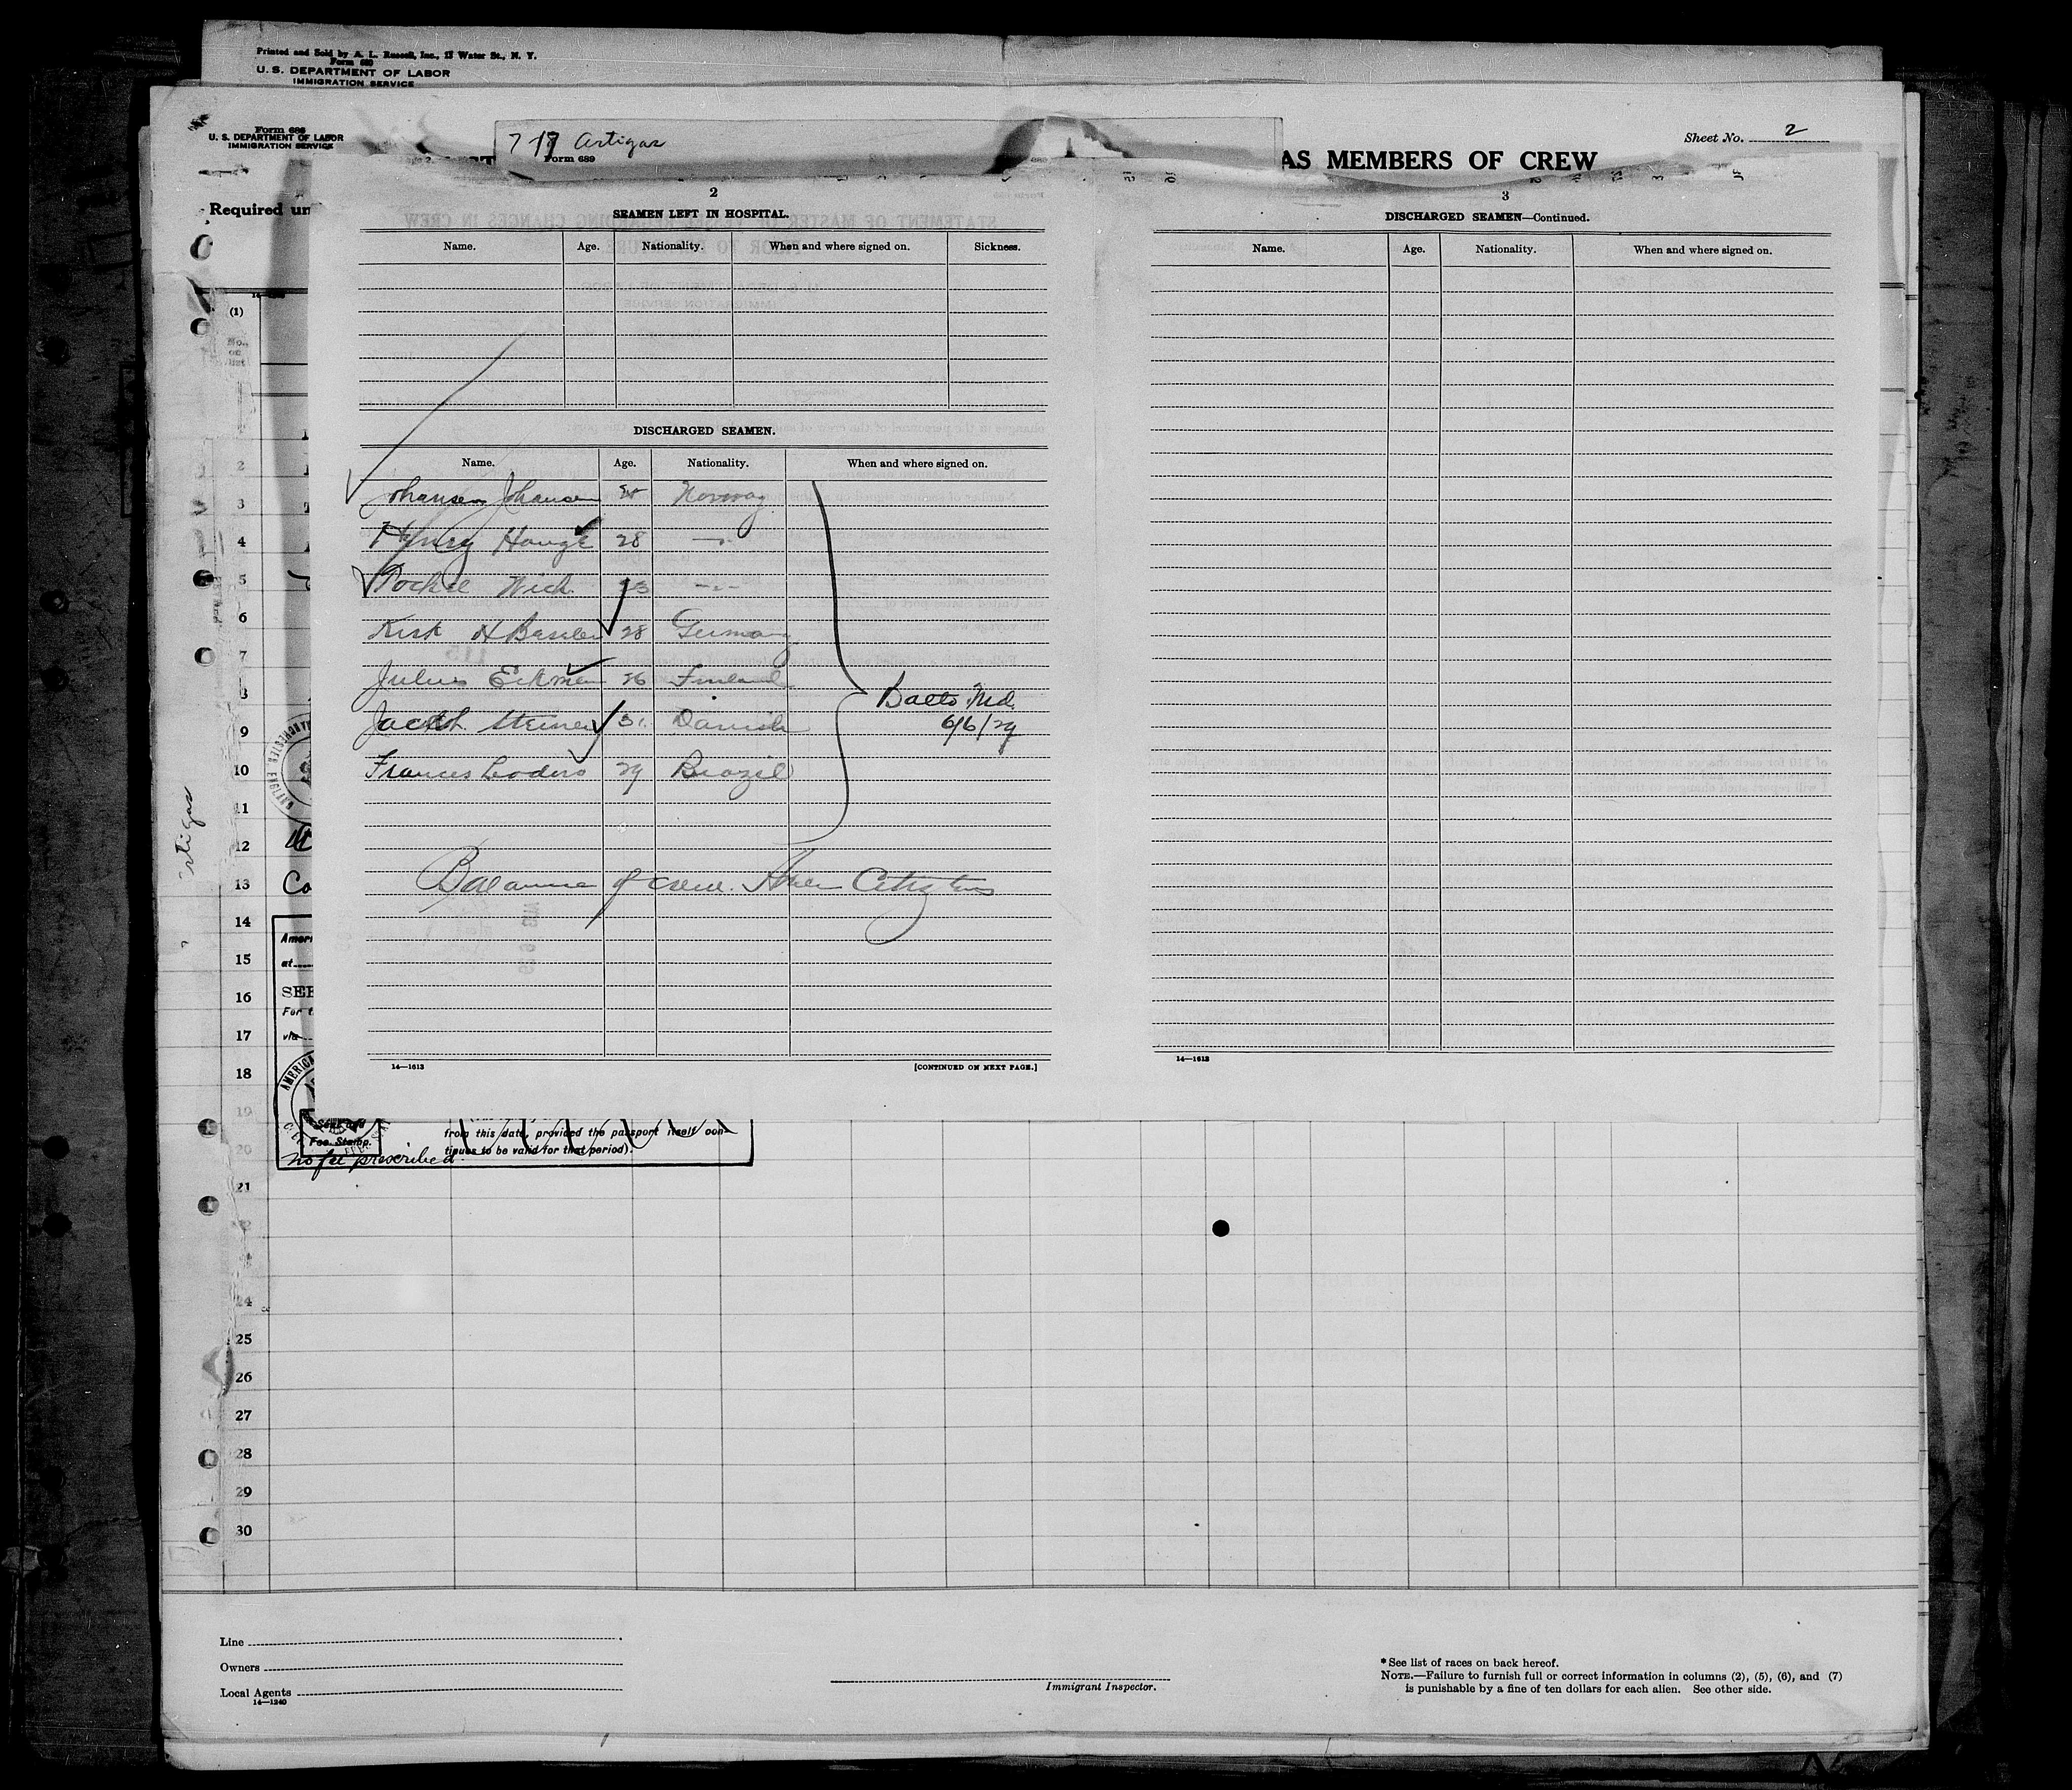 Printed and Sold by A. L. Russell, Inc., 17 Water St., N. Y.
Form 680
U. S. DEPARTMENT OF LABOR
IMMIGRATION SERVICE
Form 686
U. S. DEPARTMENT OF LABOR
IMMIGRATION SERVICE
7-17 Artigas
Form 689
Sheet No. 2
AS MEMBERS OF CREW
Required un
2
SEAMEN LEFT IN HOSPITAL.
Name. Age. Nationality. When and where signed on. Sickness.
DISCHARGED SEAMEN.
Name. Age. Nationality. When and where signed on.
Johansen Johansen Norway
Henry Hauge 28 —"—
Nick 23 —"—
Kirk H 28 Germany
Julius Eckman 26 Finland
Jacob Steiner 31 Danish
Frances 29 Brazil
Balto Md.
6/6/29
Balance of crew Amer Citizens
14—1613 [CONTINUED ON NEXT PAGE.]
3
DISCHARGED SEAMEN—Continued.
Name. Age. Nationality. When and where signed on.
14—1613
(1)
No.
on
list
2
3
4
5
6
7
8
9
10
11
12
13 Co
14
Ameri
15
at
16
SEE
For t
17
via
18
19
20
21
24
25
26
27
28
29
30
Artigas
Seal and
Fee Stamp.
No fee prescribed
from this date, provided the passport itself con-
tinues to be valid for that period).
Line
Owners
Local Agents
14—1240
Immigrant Inspector.
* See list of races on back hereof.
NOTE.—Failure to furnish full or correct information in columns (2), (5), (6), and (7)
is punishable by a fine of ten dollars for each alien. See other side.